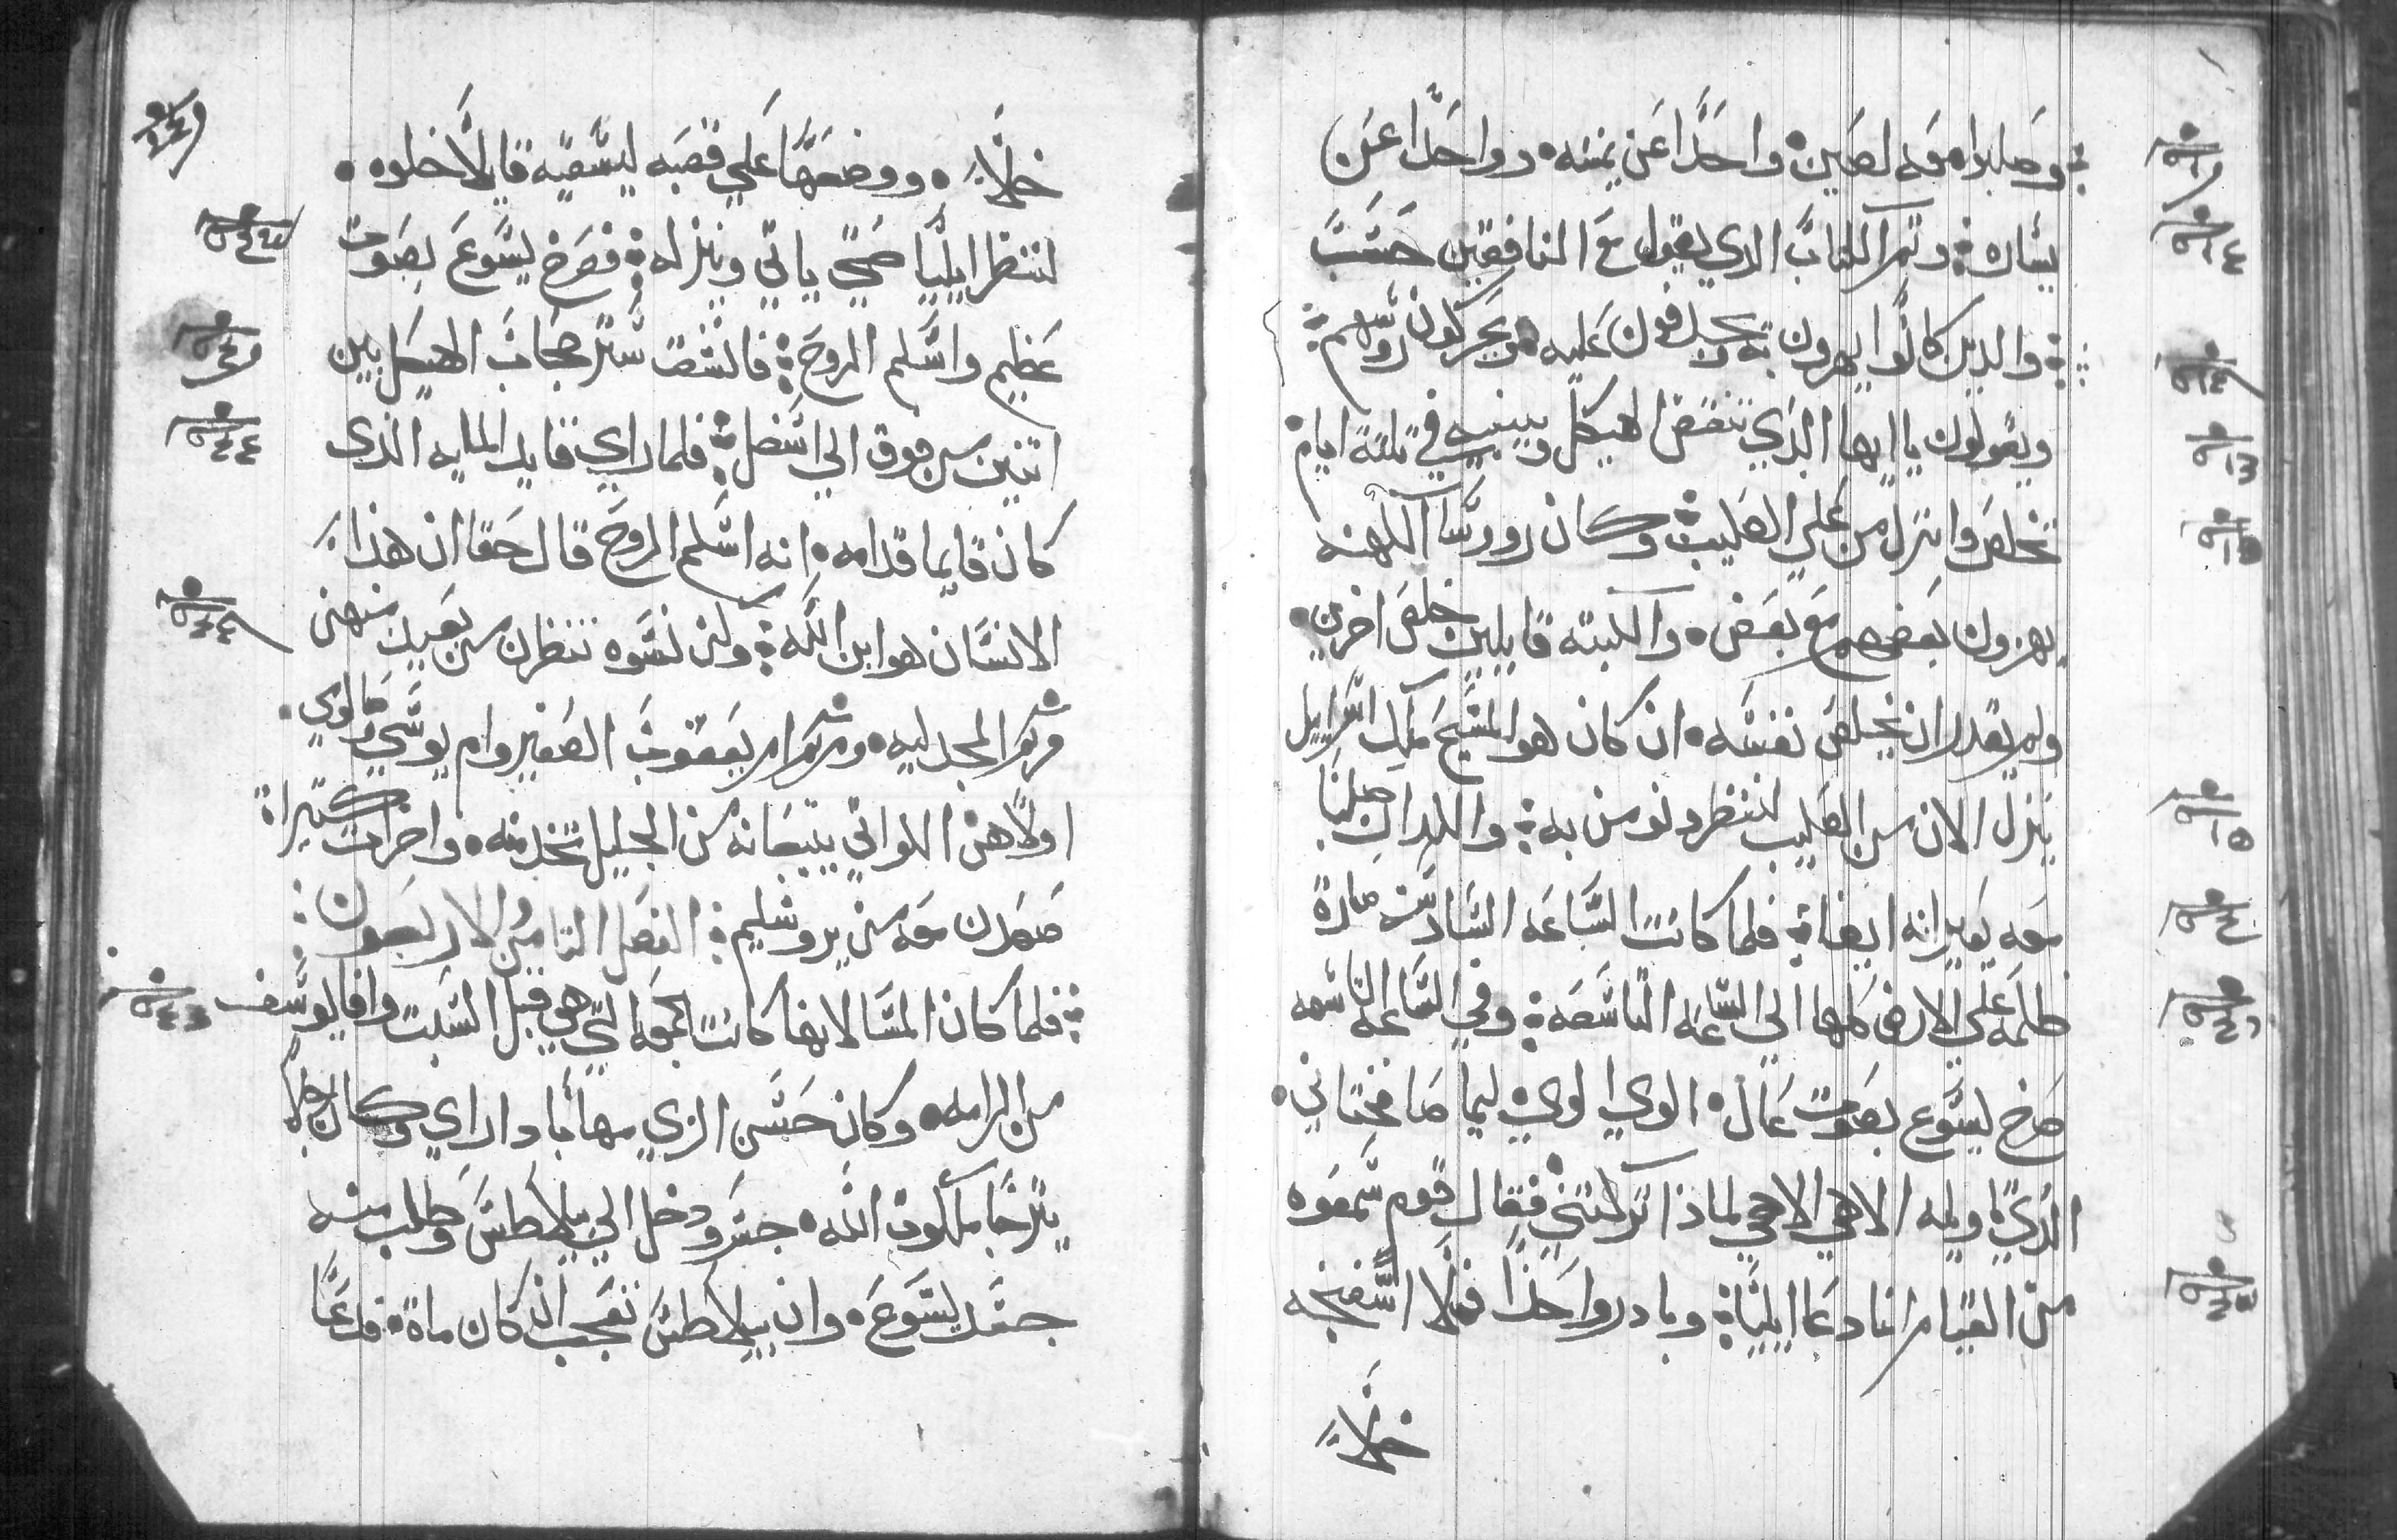 وصلبوا معه لصين واحدًا عن يمينه وواحدًا عن
يساره وتم الكتاب الذي يقول مع المنافقين حسب
والذين كانوا يمرون به يجدفون عليه ويحركون روسهم
ويقولون يا ايها الذي تنقض الهيكل ويبنيه في تلتة ايام
تخلص وانزل من علي الصليب وكان روسا الكهنه
يهزون بعضهم مع بعض والكتبة قايلين خلص اخرين
ولم يقدر ان يخلص نفسه ان كان هو المسيح ملك اسرايل
ينزل الان من الصليب لننظر ونومن به واللدان صلبا
معه يعيرانه ايضاة فلما كانت الساعه السادسه صارة
ظلمة علي الارض كلها الي الساعه التاسعه وفي الساعة التاسعه
صرخ يسوع بصوت عال الوي الوي ليما صافختاني
الذي تاويله الاهي الاهي لماذا تركتني فقال قوم سمعوه
من القيام انه دعا ايلياة وبادر واحدًا فملا اسفنجه
خلاً
خلاً ووضعها علي قصبه ليسقيه قايلًا خلوه
لننظر ايليا يجي ياتي وينزله فصرخ يسوع بصوت
عظيم واسلم الروح فانشق ستر حجاب الهيكل بين
اتنين من فوق الي اسفل فلما راي قايد المايه الذي
كان قايما قدامه انه اسلم الروح قال حقا ان هذا
الانسان هو ابن الله وكن نسوه تنظرن من بعيد منهن
مريم المجدليه ومريم ام يعقوب الصغير وام يوسي وصالومي
اولاهن اللواتي يتبعانه من الجليل تخدمنه واخرات كتيراة
صعدن معه من يروشليم الفصل التامن والاربعون
فلما كان المسا لانها كانت الجمعه التي هي قبل السبت وافا يوسف
من الرامه وكان حسن الزي مهابا دا راي وكان رجلًا
يترجا ملكوت الله جسر ودخل الي بيلاطس وطلب منه
جسد يسوع وان بيلاطس تعجب انه كان ماة فدعا